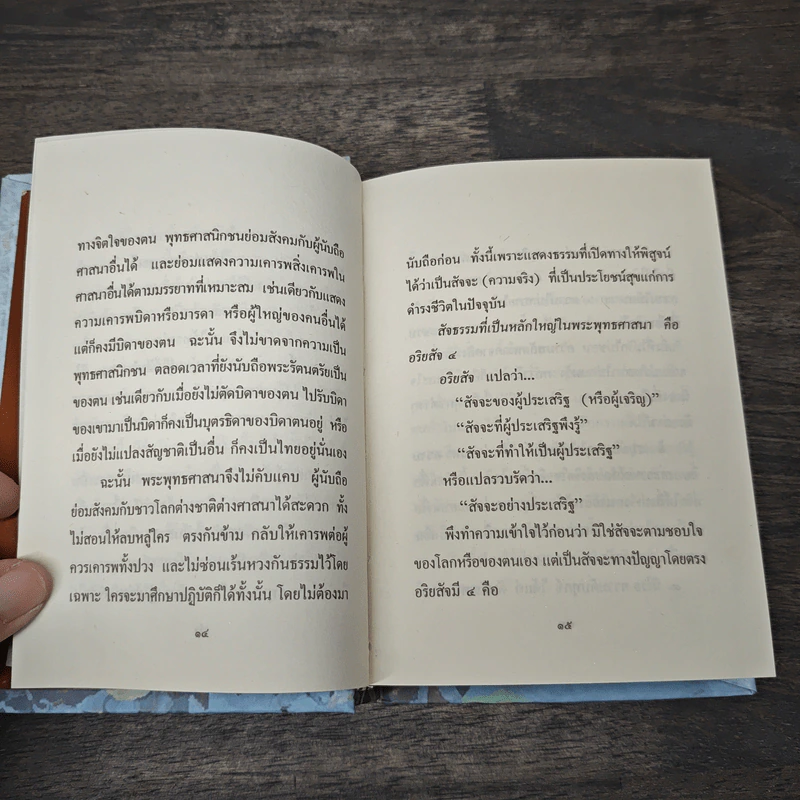 ทางจิตใจของตน พุทธศาสนิกชนย่อมสังคมกับผู้นับถือ
ศาสนาอื่นได้ และย่อมแสดงความเคารพสิ่งเคารพใน
ศาสนาอื่นได้ตามมรรยาทที่เหมาะสม เช่นเดียวกับแสดง
ความเคารพบิดาหรือมารดา หรือผู้ใหญ่ของคนอื่นได้
แต่ก็คงมีบิดาของตน ฉะนั้น จึงไม่ขาดจากความเป็น
พุทธศาสนิกชน ตลอดเวลาที่ยังนับถือพระรัตนตรัยเป็น
ของตน เช่นเดียวกับเมื่อยังไม่ตัดบิดาของตน ไปรับบิดา
ของเขามาเป็นบิดาก็คงเป็นบุตรธิดาของบิดาตนอยู่ หรือ
เมื่อยังไม่แปลงสัญชาติเป็นอื่น ก็คงเป็นไทยอยู่นั่นเอง
ฉะนั้น พระพุทธศาสนาจึงไม่คับแคบ ผู้นับถือ
ย่อมสังคมกับชาวโลกต่างชาติต่างศาสนาได้สะดวก ทั้ง
ไม่สอนให้ลบหลู่ใคร ตรงกันข้าม กลับให้เคารพต่อผู้
ควรเคารพทั้งปวง และไม่ซ่อนเร้นหวงกันธรรมไว้โดย
เฉพาะ ใครจะมาศึกษาปฏิบัติก็ได้ทั้งนั้น โดยไม่ต้องมา
๑๔
นับถือก่อน ทั้งนี้เพราะแสดงธรรมที่เปิดทางให้พิสูจน์
ได้ว่าเป็นสัจจะ (ความจริง) ที่เป็นประโยชน์สุขแก่การ
ดำรงชีวิตในปัจจุบัน
สัจธรรมที่เป็นหลักใหญ่ในพระพุทธศาสนา คือ
อริยสัจ ๔
อริยสัจ แปลว่า...
“สัจจะของผู้ประเสริฐ (หรือผู้เจริญ)”
“สัจจะที่ผู้ประเสริฐพึงรู้”
“สัจจะที่ทำให้เป็นผู้ประเสริฐ”
หรือแปลรวบรัดว่า...
“สัจจะอย่างประเสริฐ”
พึงทำความเข้าใจไว้ก่อนว่า มิใช่สัจจะตามชอบใจ
ของโลกหรือของตนเอง แต่เป็นสัจจะทางปัญญาโดยตรง
อริยสัจมี ๔ คือ
๑๕